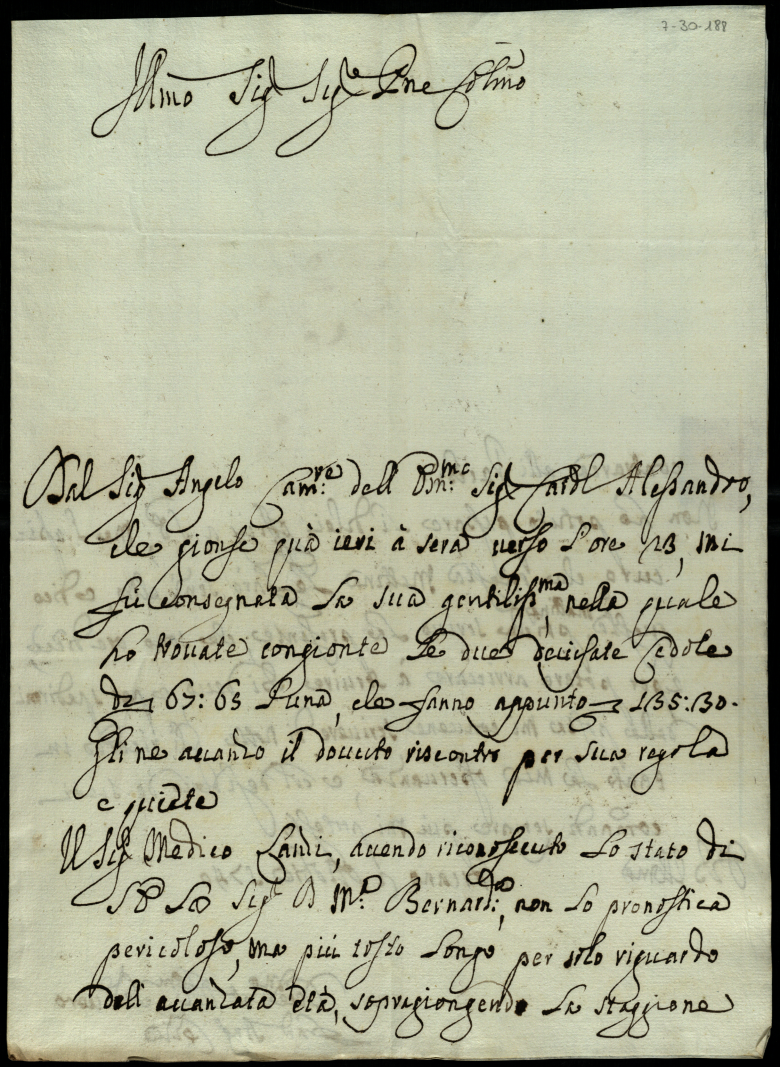 7-30-188
Illmo Sig Sigre Pne Colmo
Dal Sig Angelo Camre: dell Emmo: Sig Cardl Alessandro,
che gionse quà ieri à sera verso l'ore 23, mi
fù consegnata la sua gentilissma, nella quale
ho trovate congionte le due divisate Cedole
di 67:65 l'una, che fanno appunto 135:30.
gline avanzo il dovuto riscontro per sua regola
e quiete
Il Sig Medico Landi, avendo riconosciuto lo stato di
Sig D Mo: Bernardo:, non lo pronostica
pericoloso, ma più tosto longo per solo riguardo
dell avanzata età, sopragiongendo la staggione